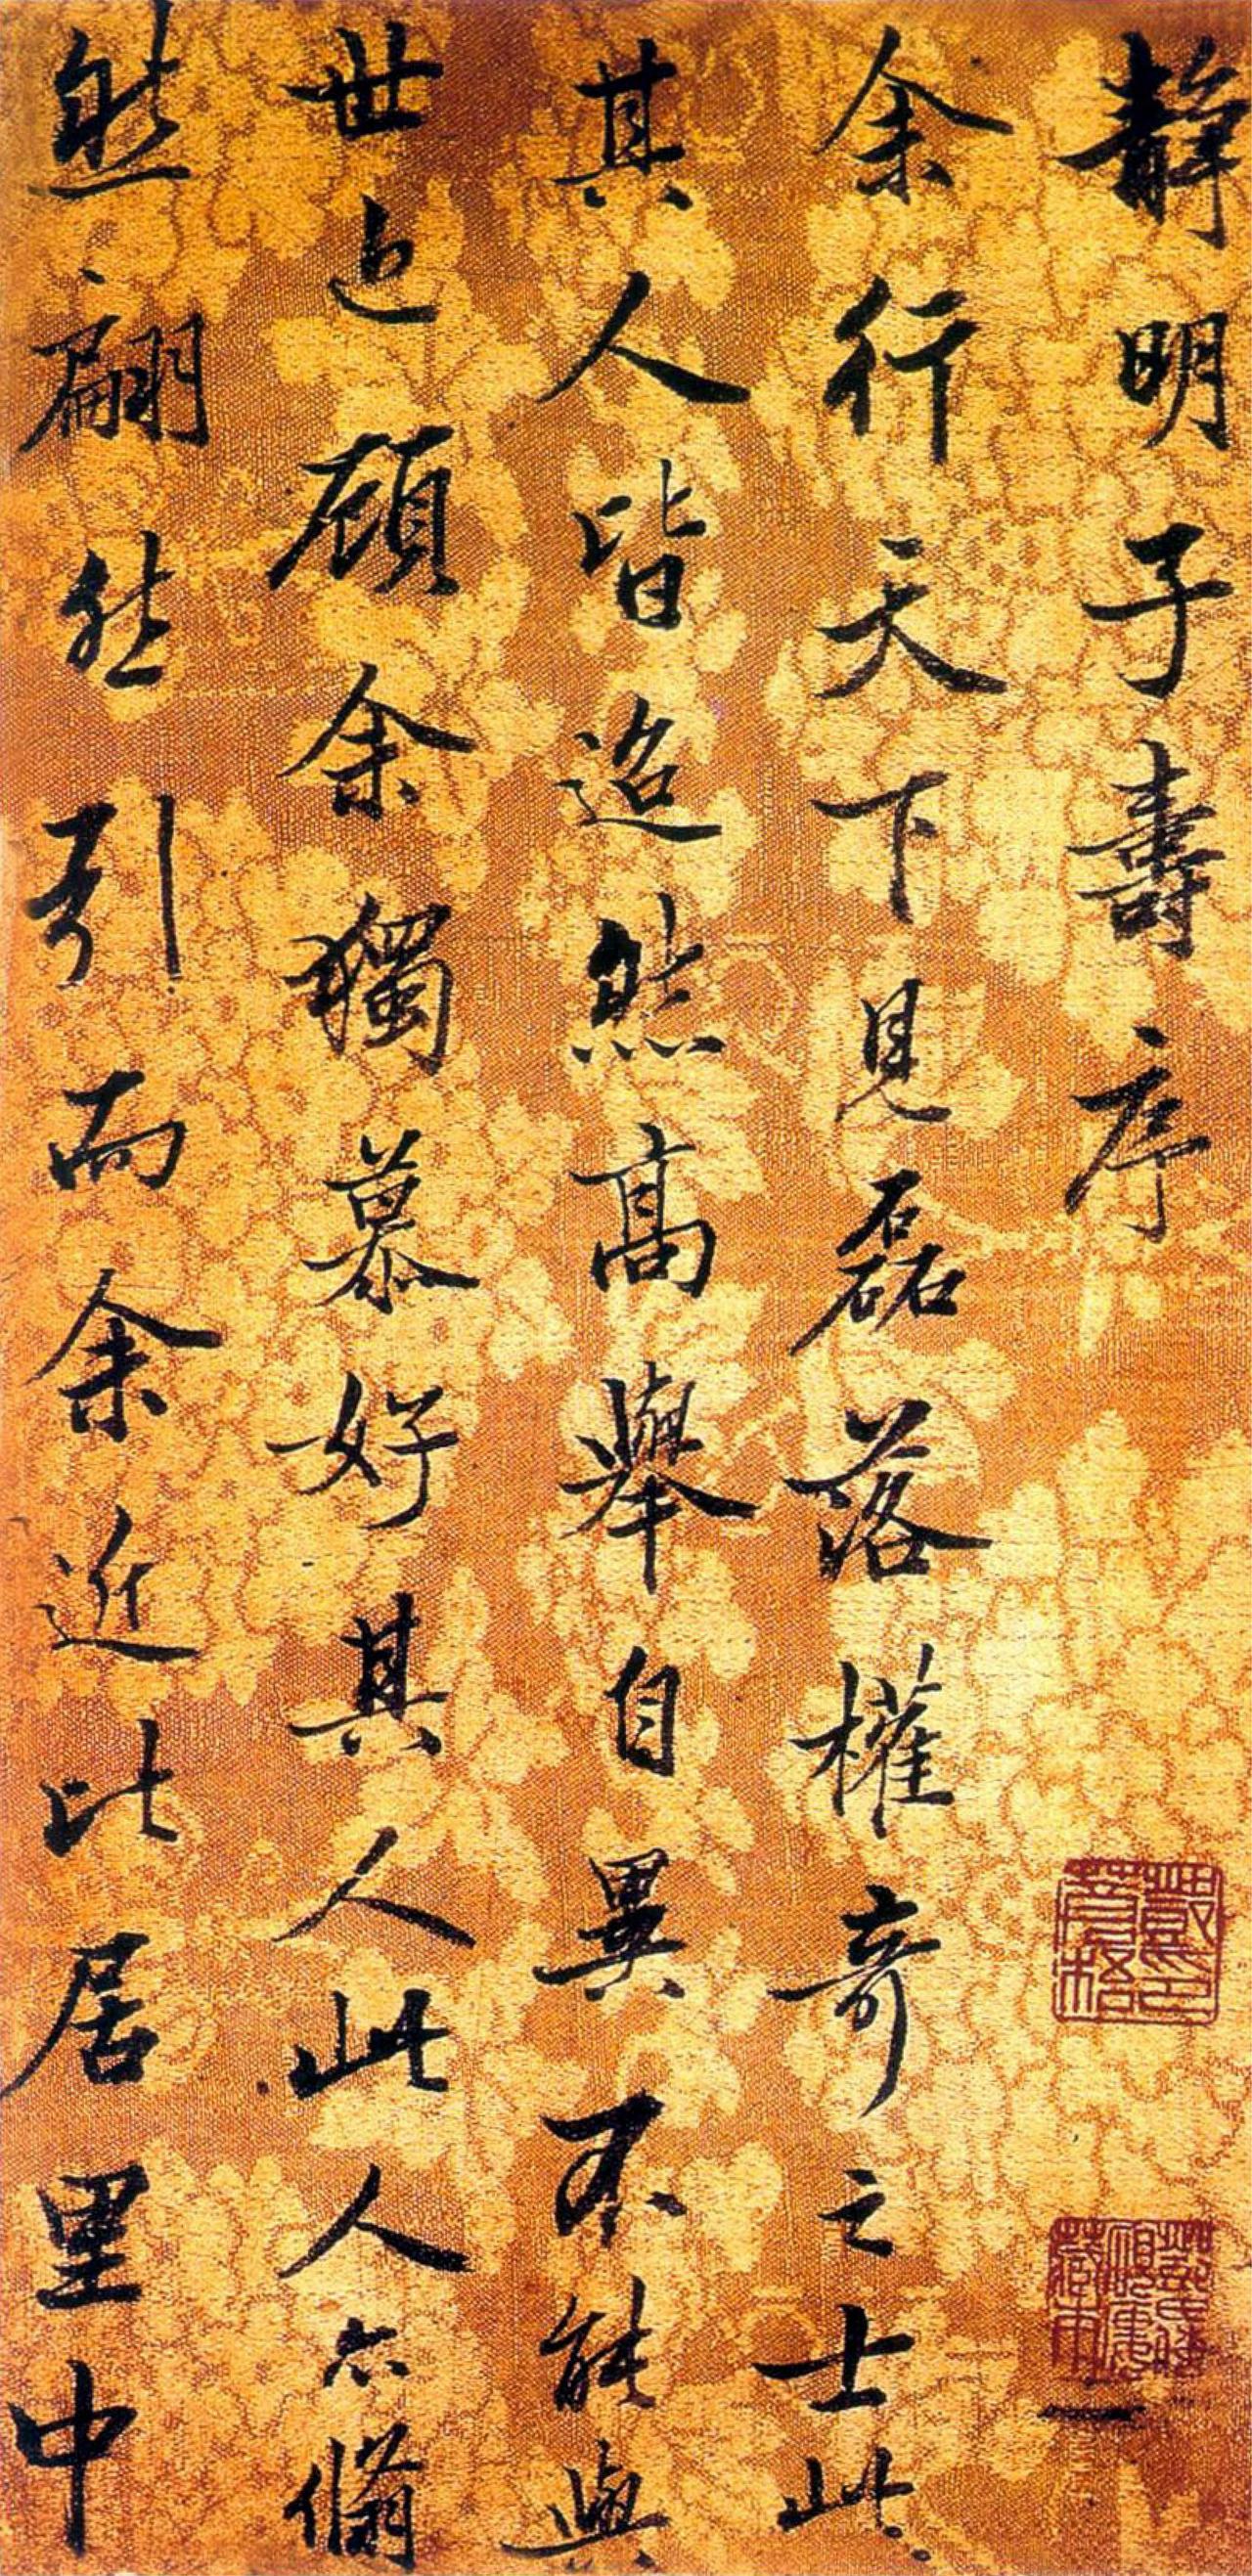 靜明子壽序
一
余行天下見磊落權奇之士此
其人皆迢然高舉自異不能與
世近顧余獨慕好其人此人亦翛
然翩然引而余近比居里中